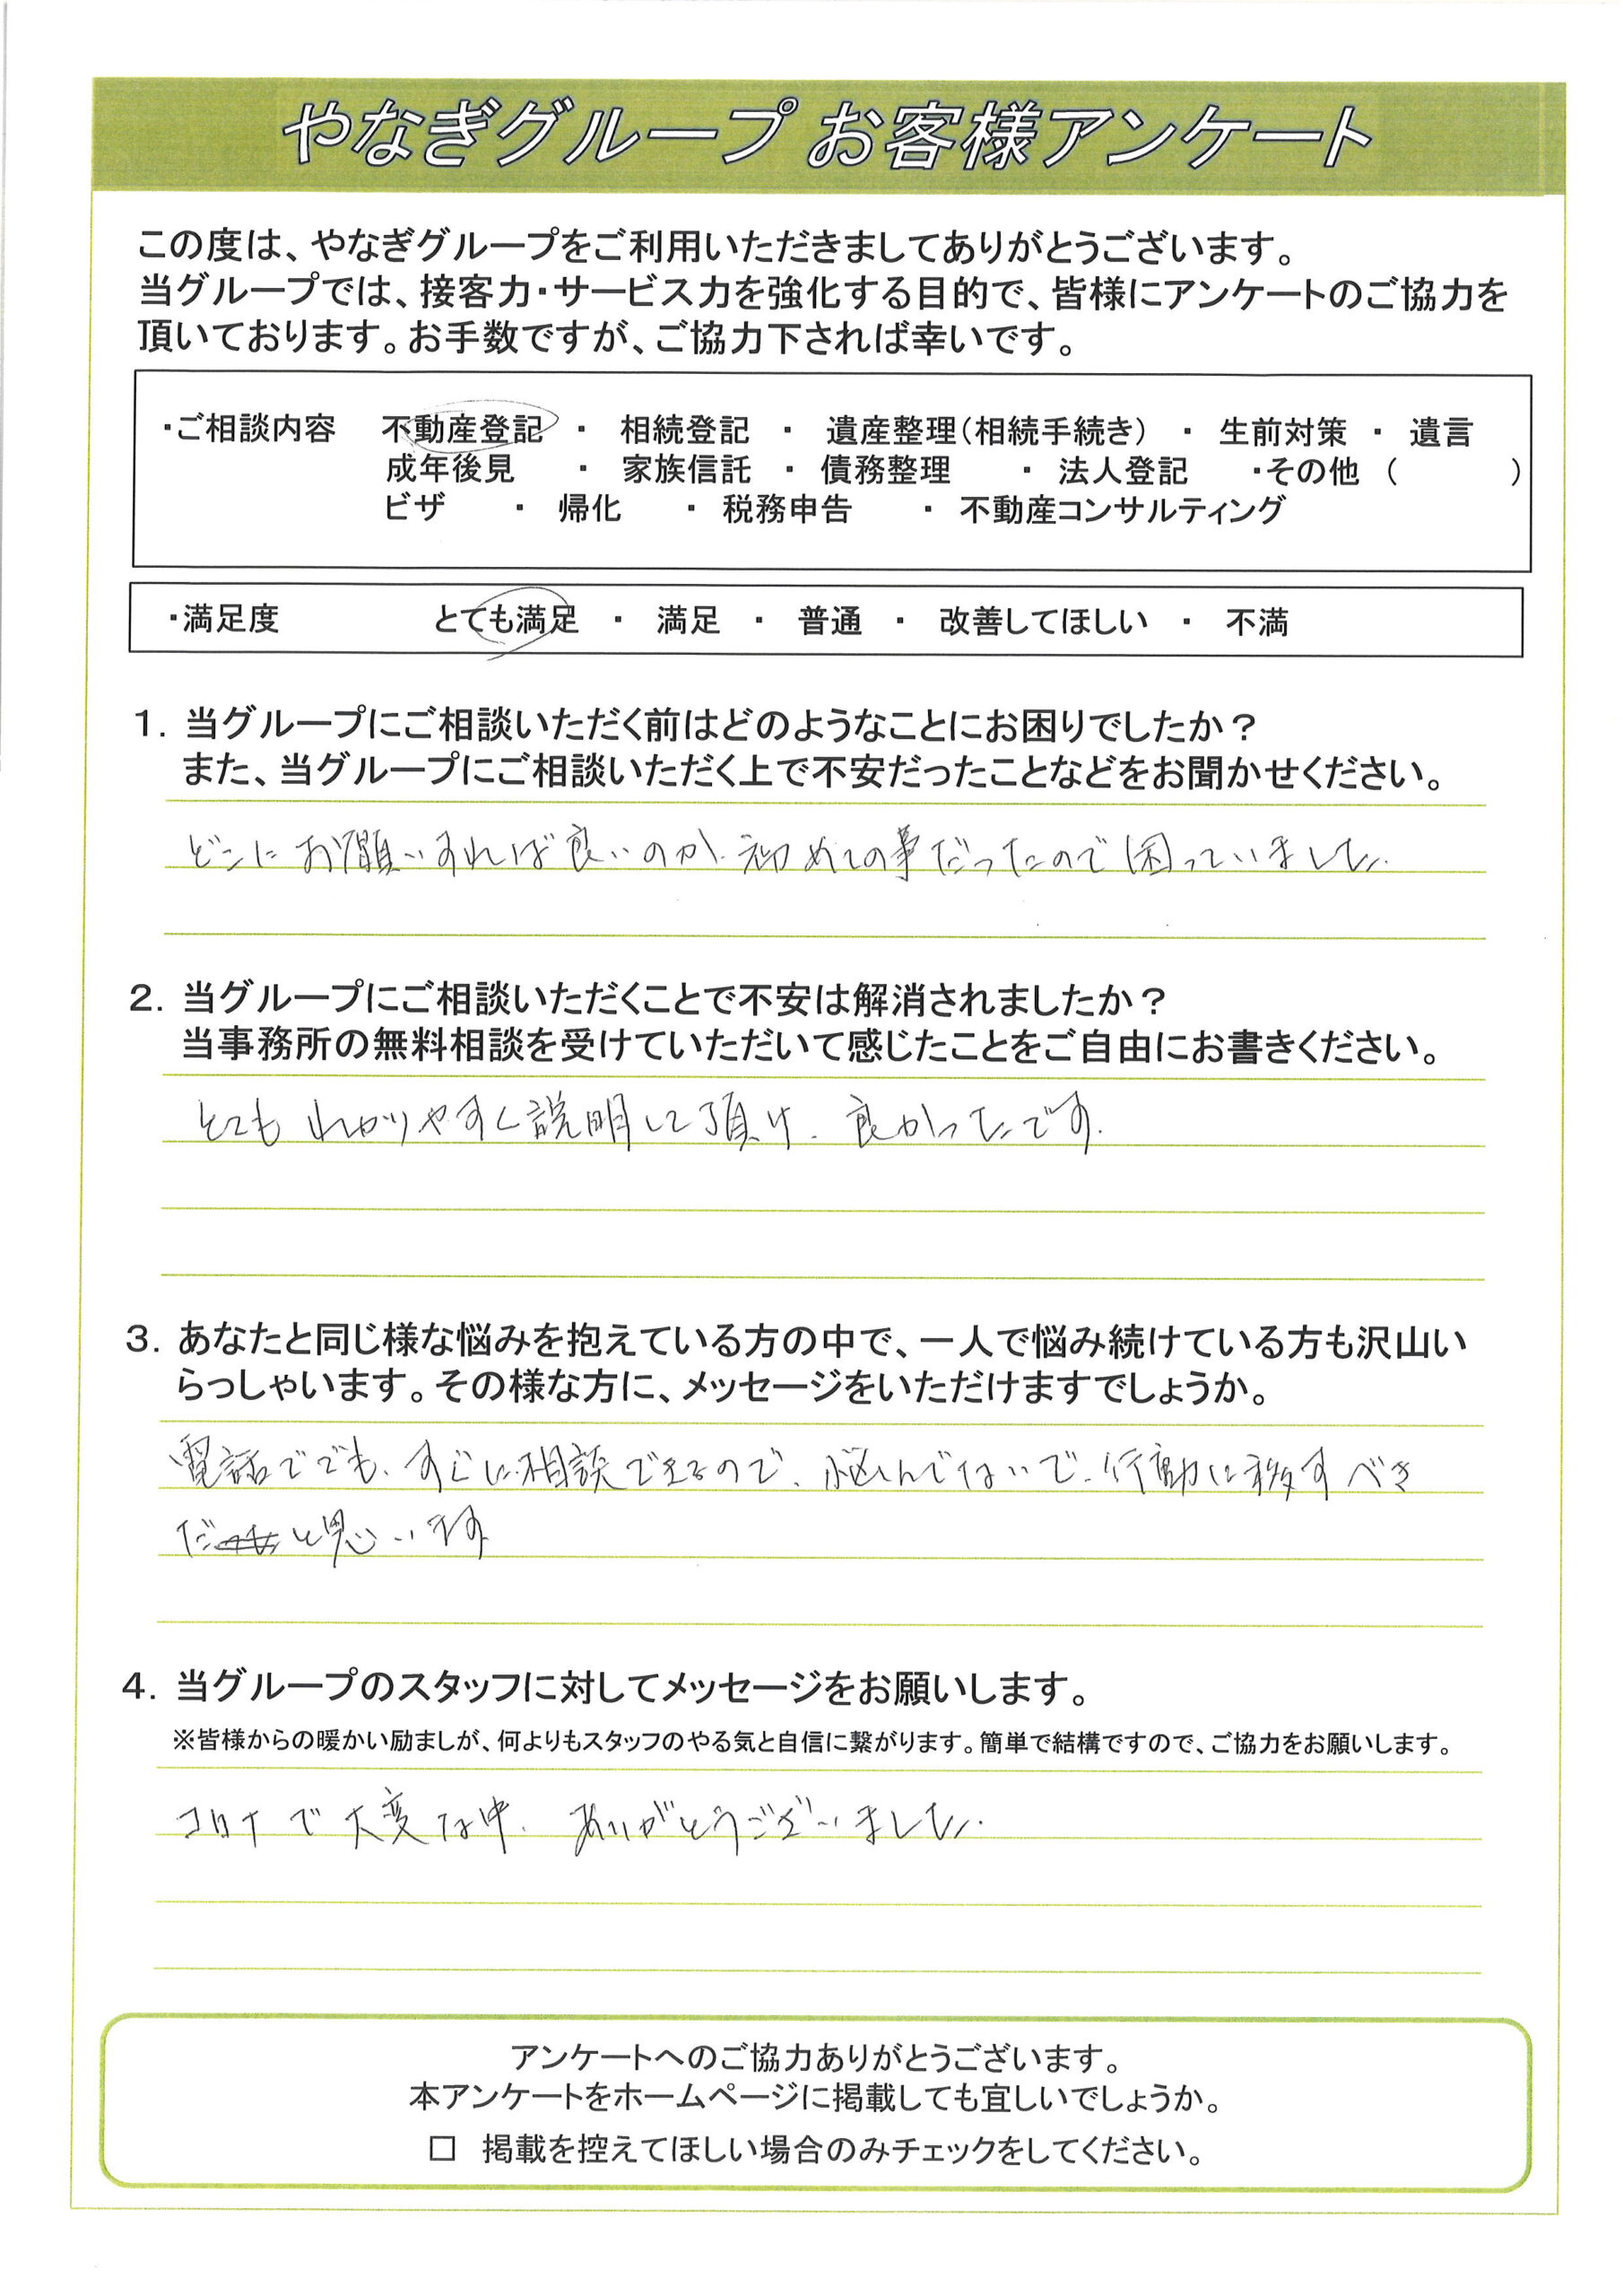 やなぎグループ お客様アンケート
この度は、やなぎグループをご利用いただきましてありがとうございます。
当グループでは、接客力・サービス力を強化する目的で、皆様にアンケートのご協力を
頂いております。お手数ですが、ご協力下されば幸いです。
・ご相談内容 不動産登記 ・ 相続登記 ・ 遺産整理(相続手続き) ・ 生前対策 ・ 遺言
成年後見 ・ 家族信託 ・ 債務整理 ・ 法人登記 ・その他 ( )
ビザ ・ 帰化 ・ 税務申告 ・ 不動産コンサルティング
・満足度 とても満足 ・ 満足 ・ 普通 ・ 改善してほしい ・ 不満
1. 当グループにご相談いただく前はどのようなことにお困りでしたか？
また、当グループにご相談いただく上で不安だったことなどをお聞かせください。
どこにお願いすれば良いのか、初めての事だったので困っていました。
2. 当グループにご相談いただくことで不安は解消されましたか？
当事務所の無料相談を受けていただいて感じたことをご自由にお書きください。
とてもわかりやすく説明して頂け、良かったです。
3. あなたと同じ様な悩みを抱えている方の中で、一人で悩み続けている方も沢山い
らっしゃいます。その様な方に、メッセージをいただけますでしょうか。
電話ででも、すぐに相談できるので、悩んでないで、行動に移すべき
だと思います
4. 当グループのスタッフに対してメッセージをお願いします。
※皆様からの暖かい励ましが、何よりもスタッフのやる気と自信に繋がります。簡単で結構ですので、ご協力をお願いします。
コロナで大変な中、ありがとうございました。
アンケートへのご協力ありがとうございます。
本アンケートをホームページに掲載しても宜しいでしょうか。
□ 掲載を控えてほしい場合のみチェックをしてください。